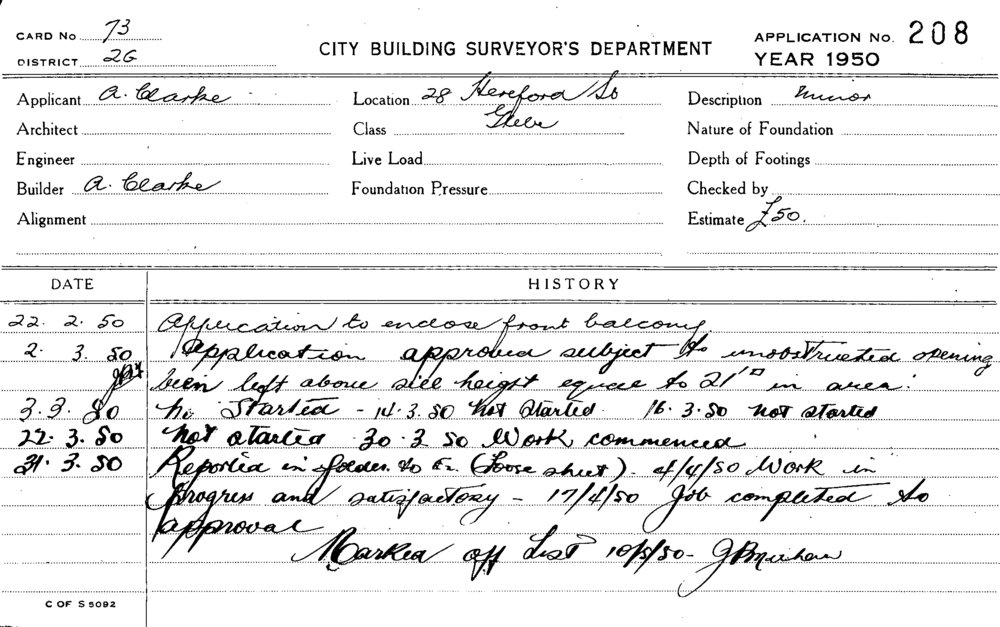 CARD No 73
DISTRICT 2G
CITY BUILDING SURVEYOR'S DEPARTMENT
APPLICATION No. 208
YEAR 1950
Applicant A. Clarke
Location 28 Hereford St
Description Minor
Architect
Class Glebe
Nature of Foundation
Engineer
Live Load
Depth of Footings
Builder A. Clarke
Foundation Pressure
Checked by
Alignment
Estimate £50.
DATE HISTORY
22. 2. 50 Application to enclose front balcony
2. 3. 50 Application approved subject to unobstructed opening
been left above sill height equal to 21'□ in area.
3. 3. 50 Started - 14.3.50 not started. 16.3.50 not started
22. 3. 50 not started 30.3.50 Work commenced
31. 3. 50 Reported in folder to (Loose sheet). 4/4/50 Work in
progress and satisfactory - 17/4/50 Job completed to
approval
Marked off List 10/5/50-
C OF S 5092